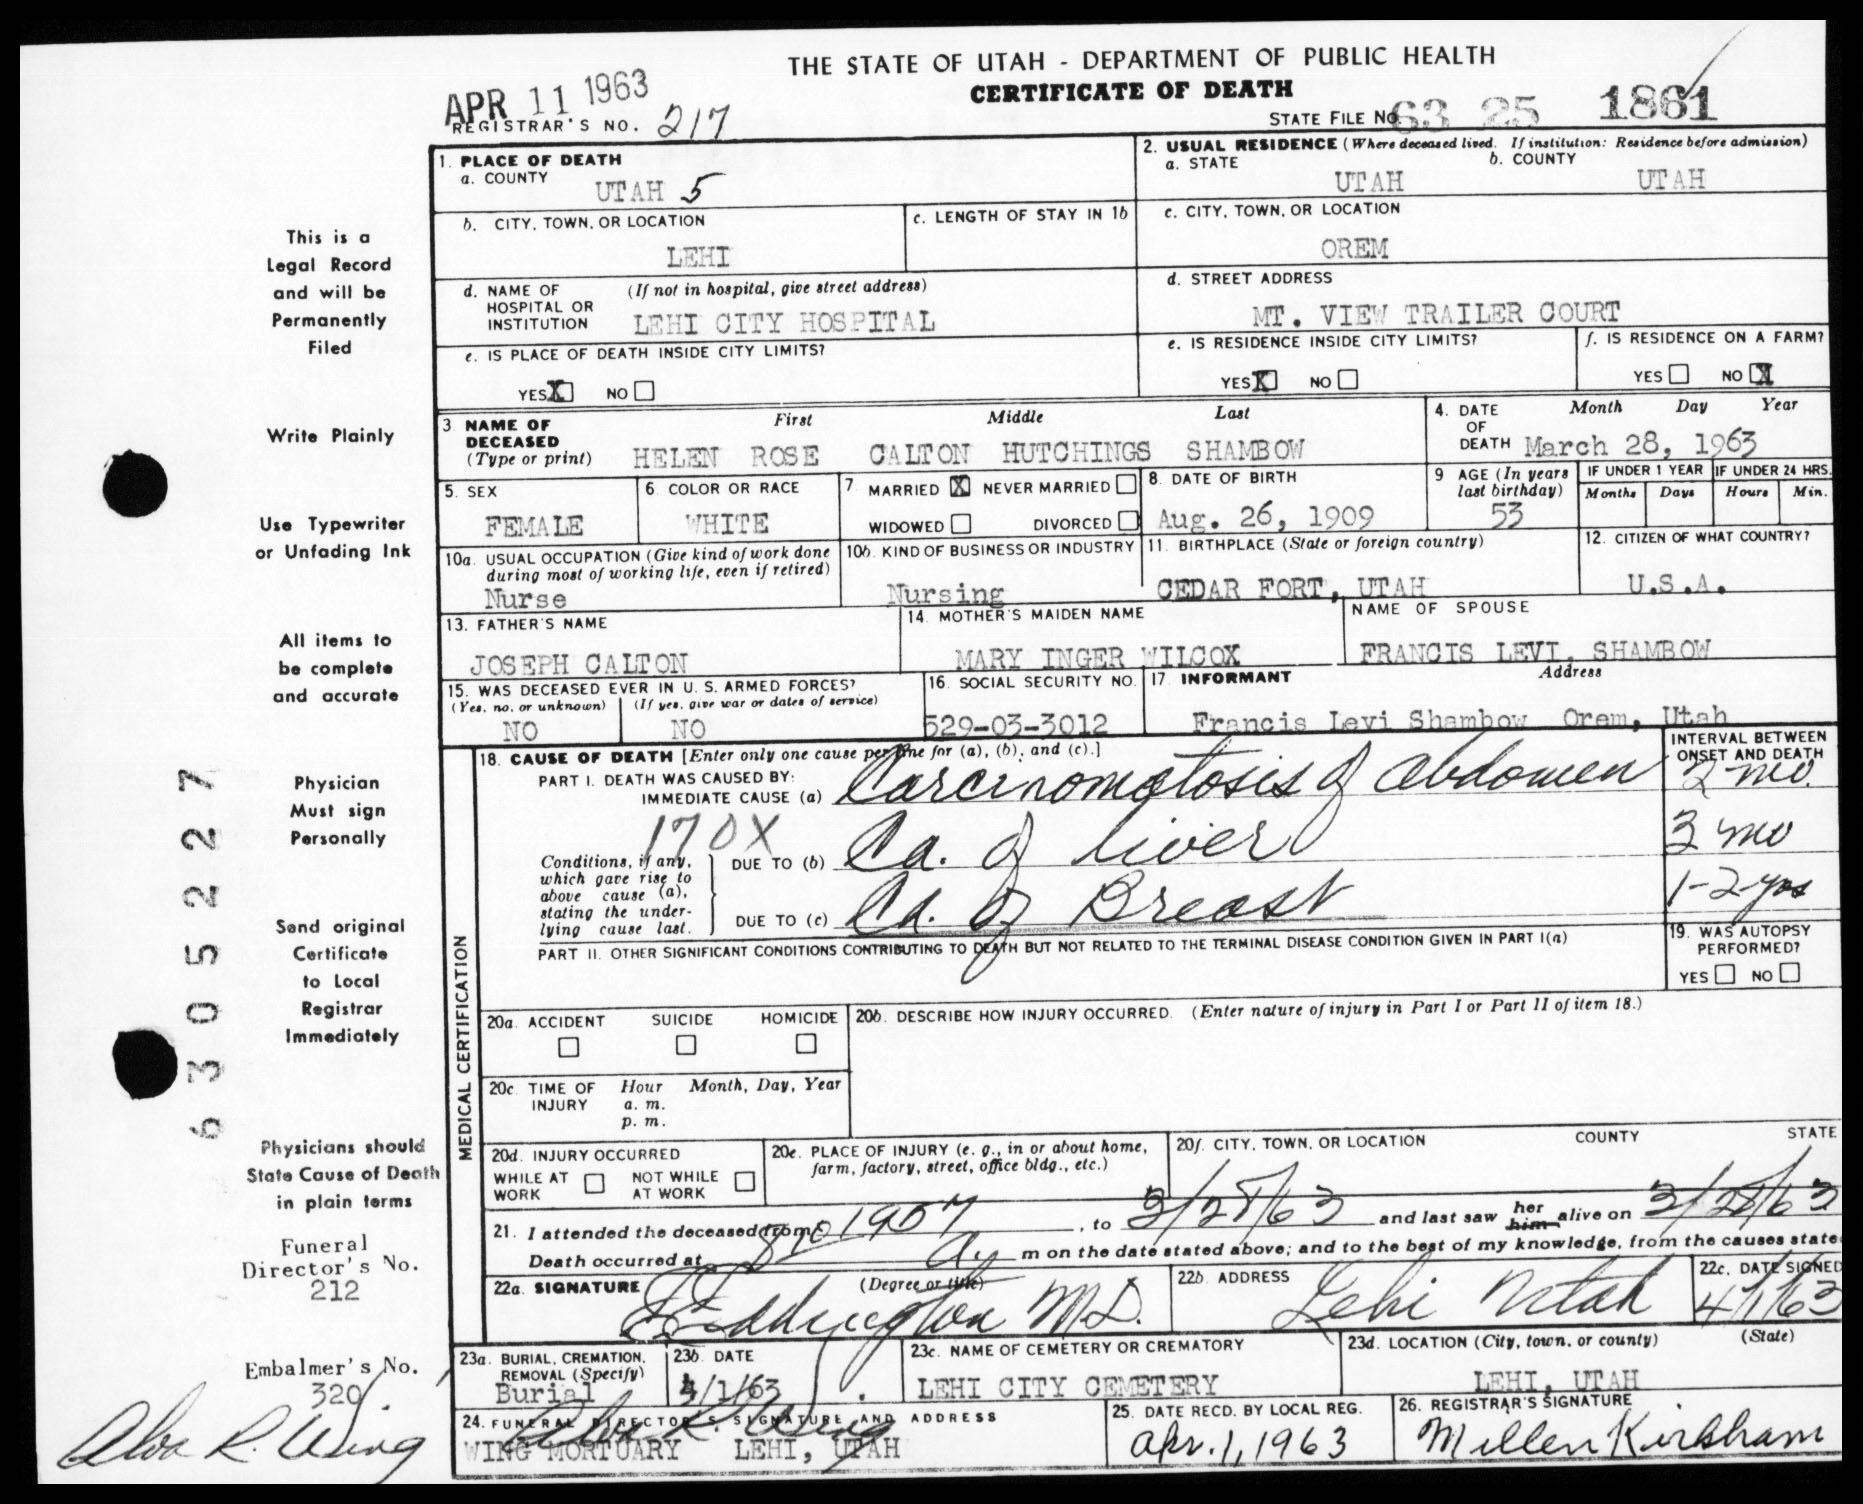 THE STATE OF UTAH - DEPARTMENT OF PUBLIC HEALTH
CERTIFICATE OF DEATH
APR 11 1963
REGISTRAR'S NO. 217
STATE FILE No. 63 25 1861
1. PLACE OF DEATH
a. COUNTY
UTAH 5
2. USUAL RESIDENCE (Where deceased lived. If institution: Residence before admission)
a. STATE b. COUNTY
UTAH UTAH
b. CITY, TOWN, OR LOCATION
LEHI
c. LENGTH OF STAY IN 1b
c. CITY, TOWN, OR LOCATION
OREM
d. NAME OF HOSPITAL OR INSTITUTION (If not in hospital, give street address)
LEHI CITY HOSPITAL
d. STREET ADDRESS
MT. VIEW TRAILER COURT
e. IS PLACE OF DEATH INSIDE CITY LIMITS?
YES X NO
e. IS RESIDENCE INSIDE CITY LIMITS?
YES X NO
f. IS RESIDENCE ON A FARM?
YES NO X
3 NAME OF DECEASED (Type or print)
First Middle Last
HELEN ROSE CALTON HUTCHINGS SHAMBOW
4. DATE OF DEATH Month Day Year
March 28, 1963
5. SEX
FEMALE
6 COLOR OR RACE
WHITE
7 MARRIED X NEVER MARRIED
WIDOWED DIVORCED
8. DATE OF BIRTH
Aug. 26, 1909
9 AGE (In years last birthday)
53
IF UNDER 1 YEAR IF UNDER 24 HRS.
Months Days Hours Min.
10a. USUAL OCCUPATION (Give kind of work done during most of working life, even if retired)
Nurse
10b. KIND OF BUSINESS OR INDUSTRY
Nursing
11. BIRTHPLACE (State or foreign country)
CEDAR FORT, UTAH
12. CITIZEN OF WHAT COUNTRY?
U.S.A.
13. FATHER'S NAME
JOSEPH CALTON
14. MOTHER'S MAIDEN NAME
MARY INGER WILCOX
NAME OF SPOUSE
FRANCIS LEVI. SHAMBOW
15. WAS DECEASED EVER IN U. S. ARMED FORCES?
(Yes, no, or unknown) (If yes, give war or dates of service)
NO NO
16. SOCIAL SECURITY NO.
529-03-3012
17. INFORMANT Address
Francis Levi Shambow Orem, Utah
18. CAUSE OF DEATH [Enter only one cause per line for (a), (b), and (c).]
INTERVAL BETWEEN ONSET AND DEATH
PART I. DEATH WAS CAUSED BY:
IMMEDIATE CAUSE (a) Carcinomatosis of abdomen 2 mo.
170X
Conditions, if any, which gave rise to above cause (a), stating the underlying cause last.
DUE TO (b) Ca. of liver 3 mo
DUE TO (c) Ca. of Breast 1-2-yrs
PART II. OTHER SIGNIFICANT CONDITIONS CONTRIBUTING TO DEATH BUT NOT RELATED TO THE TERMINAL DISEASE CONDITION GIVEN IN PART I(a)
19. WAS AUTOPSY PERFORMED?
YES NO
MEDICAL CERTIFICATION
20a. ACCIDENT SUICIDE HOMICIDE
20b. DESCRIBE HOW INJURY OCCURRED. (Enter nature of injury in Part I or Part II of item 18.)
20c. TIME OF INJURY Hour Month, Day, Year
a. m.
p. m.
20d. INJURY OCCURRED
WHILE AT WORK NOT WHILE AT WORK
20e. PLACE OF INJURY (e. g., in or about home, farm, factory, street, office bldg., etc.)
20f. CITY, TOWN, OR LOCATION COUNTY STATE
21. I attended the deceased from 1957, to 3/28/63 and last saw her him alive on 3/28/63
Death occurred at 810 a m on the date stated above; and to the best of my knowledge, from the causes state
22a. SIGNATURE (Degree or title)
Eddington M.D.
22b. ADDRESS
Lehi Utah
22c. DATE SIGNED
4/1/63
23a. BURIAL, CREMATION, REMOVAL (Specify)
Burial
23b. DATE
4/1/63
23c. NAME OF CEMETERY OR CREMATORY
LEHI CITY CEMETERY
23d. LOCATION (City, town, or county) (State)
LEHI, UTAH
24. FUNERAL DIRECTOR'S SIGNATURE AND ADDRESS
Alva R. Wing
WING MORTUARY LEHI, UTAH
25. DATE RECD. BY LOCAL REG.
Apr. 1, 1963
26. REGISTRAR'S SIGNATURE
Millen Kirkham
This is a
Legal Record
and will be
Permanently
Filed
Write Plainly
Use Typewriter
or Unfading Ink
All items to
be complete
and accurate
Physician
Must sign
Personally
Send original
Certificate
to Local
Registrar
Immediately
Physicians should
State Cause of Death
in plain terms
Funeral
Director's No.
212
Embalmer's No.
320
Alva R. Wing
6305227